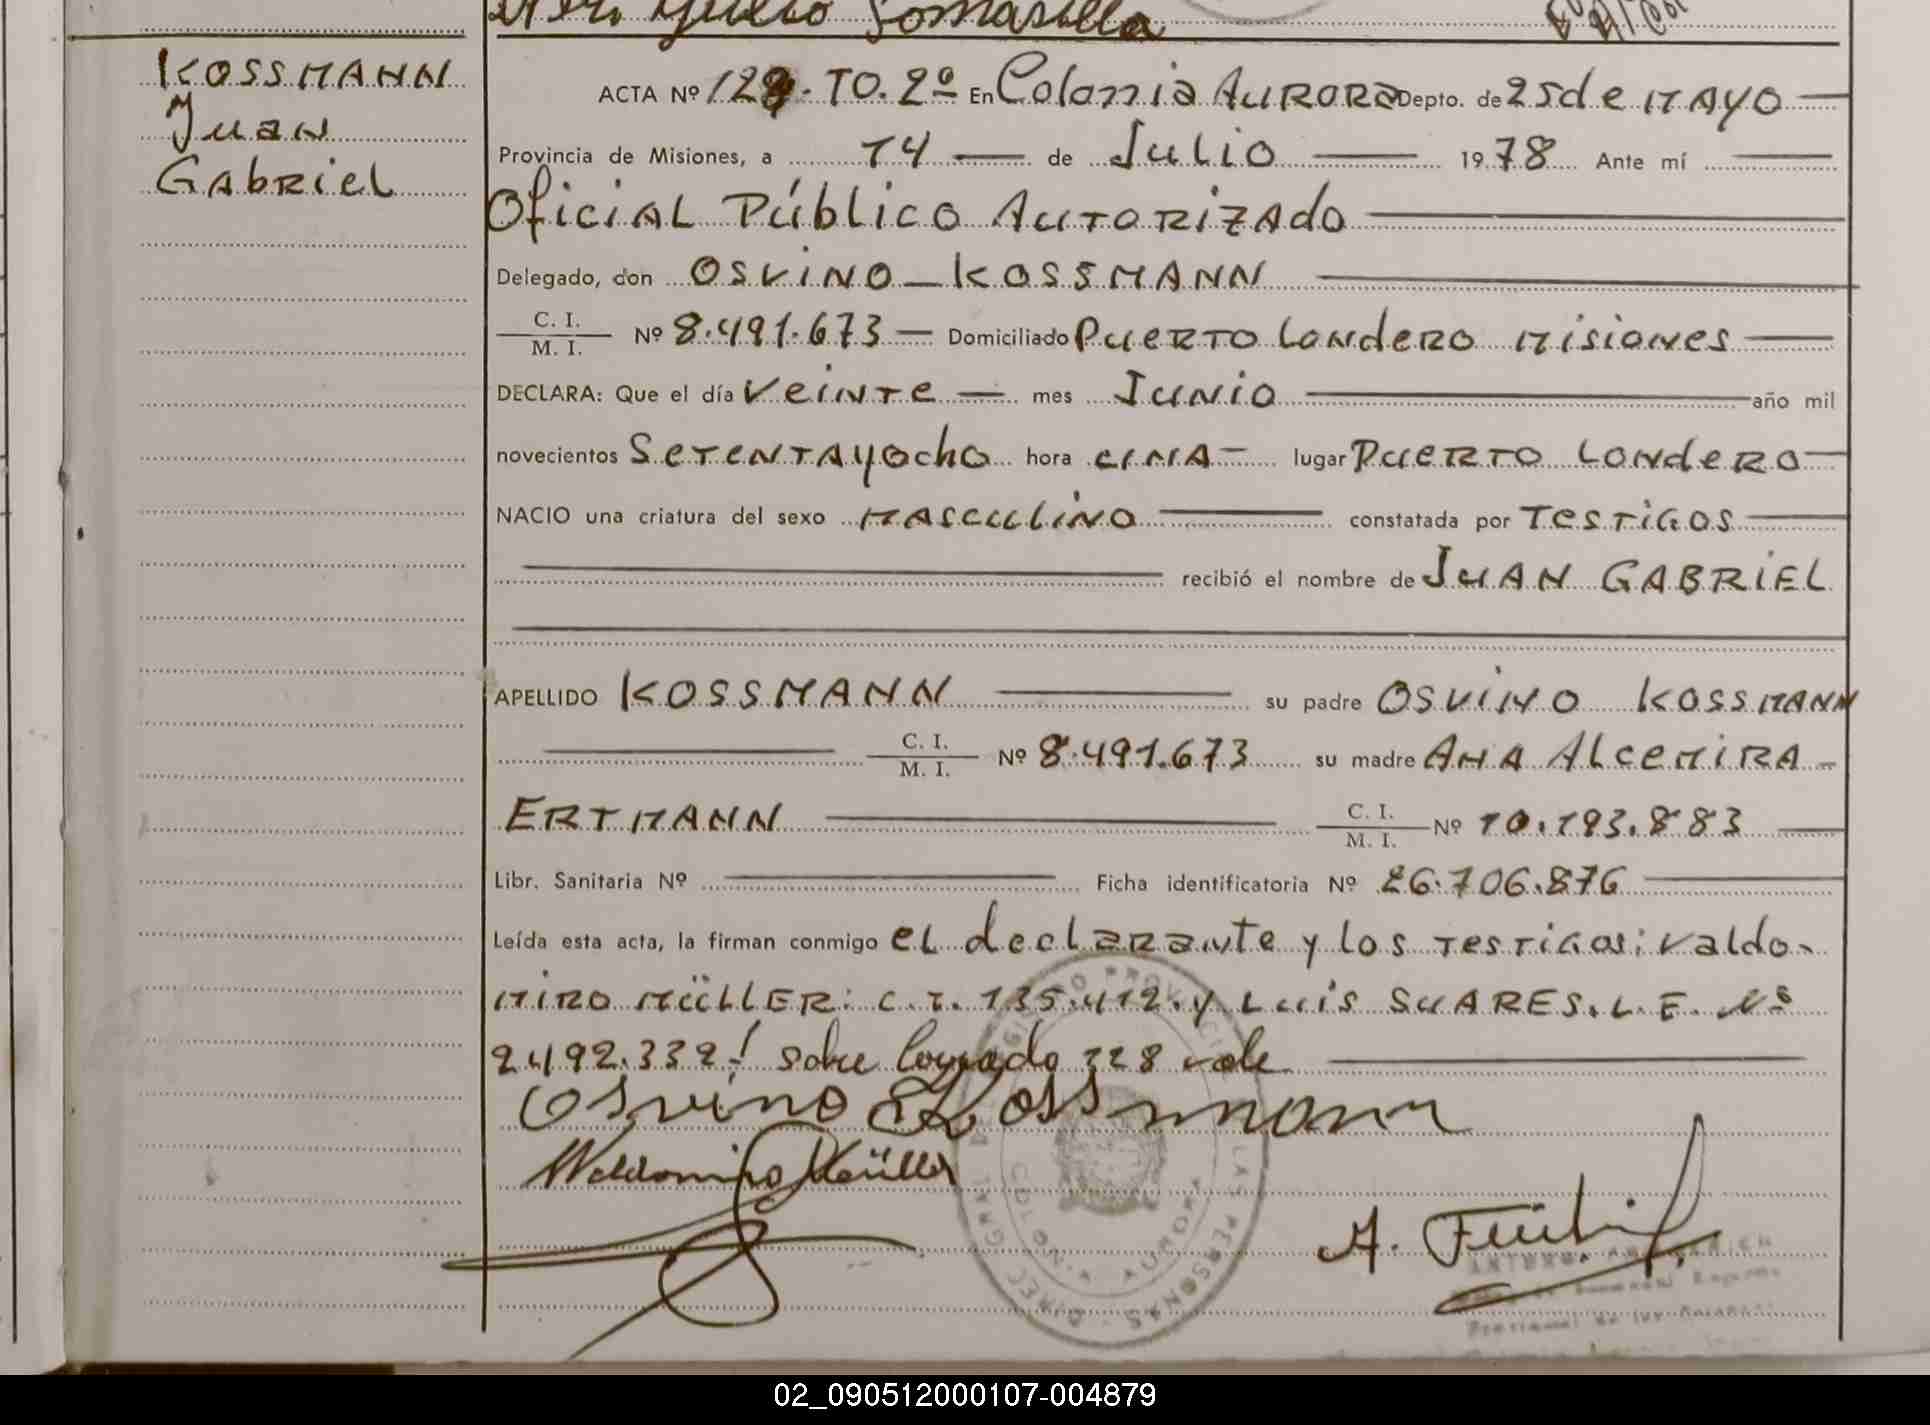 Julio Tomasella
KOSSMANN
Juan
Gabriel
ACTA Nº 128. TO. 2º En Colonia AURORA Depto. de 25 de MAYO
Provincia de Misiones, a 14 de Julio 1978 Ante mí
Oficial Público Autorizado
Delegado, don OSVINO KOSSMANN
C. I. / M. I. Nº 8.491.673 Domiciliado PUERTO Londero Misiones
DECLARA: Que el día Veinte mes Junio año mil
novecientos SetentayOcho hora UNA lugar PUERTO LONdERO
NACIO una criatura del sexo MASCULINO constatada por TESTIGOS
recibió el nombre de JUAN GABRIEL
APELLIDO KOSSMANN su padre OSVINO KOSSMANN
C. I. / M. I. Nº 8.491.673 su madre ANA ALCEMIRA
ERTMANN C. I. / M. I. Nº 10.193.883
Libr. Sanitaria Nº Ficha identificatoria Nº 26.706.876
Leída esta acta, la firman conmigo el declarante y los Testigos: Valdo-
MIRO MÜLLER: C.I. 135.412. y LUIS SUARES. L.E. Nº
2492.332! sobre borrado 128 vale
Osvino Kossmann
Waldomiro Müller
A.
02_090512000107-004879